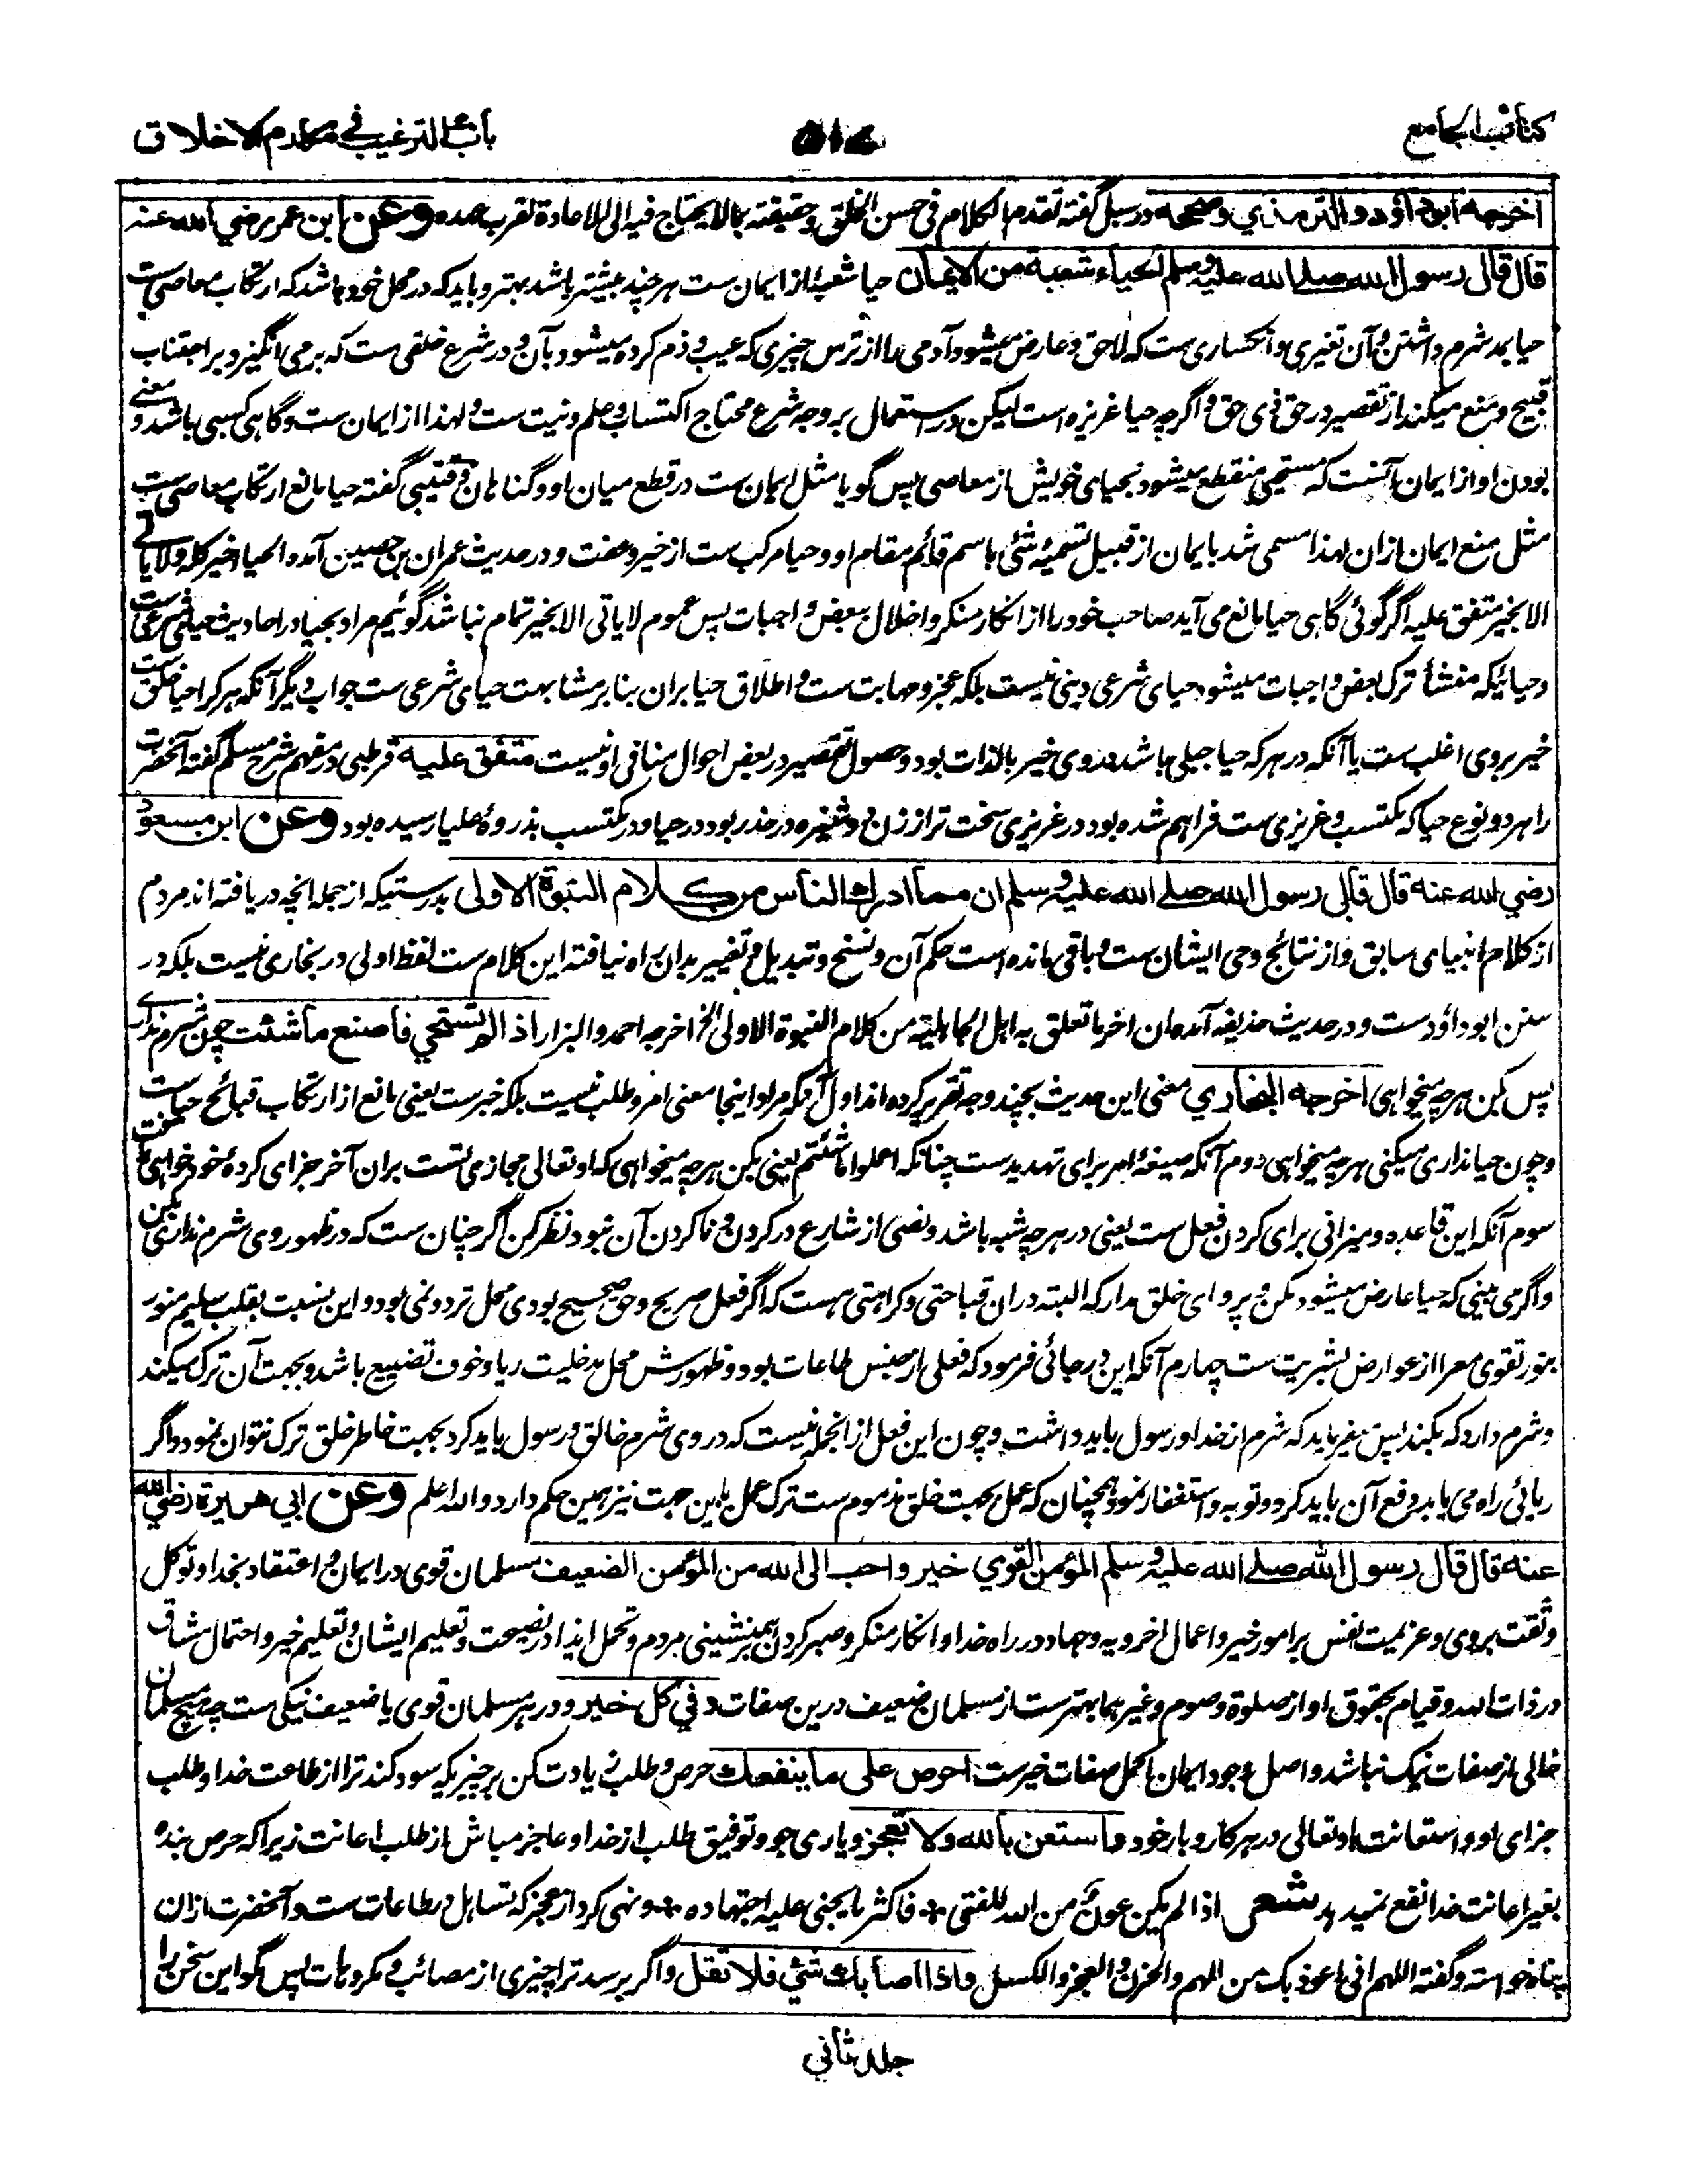 کتاب الجامع
باب الترغیب فی مکارم الاخلاق
اخرجه ابوداؤد والترمذي وصححه در سبل گفته تقدم الکلام فی حسن الخلق وحقیقته بما لا یحتاج فیه الی الاعادة لقرب عهده وعن ابن عمر رضي الله عنه
قال قال رسول الله صلے الله علیه وسلم الحیاء شعبة من الایمان حیا شعبهٔ از ایمان ست هر چند بیشتر باشد بهتر و باید که در محل خود باشد که ارتکاب معاصی ست
حیا بمد شرم داشتن و آن تغیری و انکساری ست که لاحق و عارض میشود آدمی را از ترس چیزی که عیب و ذم کرده میشود بآن و در شرع خلقی ست که برمی انگیزد بر اجتناب
قبیح و منع میکند از تقصیر در حق ذی حق و اگرچه حیا غریزه است لیکن در استعمال بر وجه شرع محتاج اکتساب و علم و نیت ست و لهذا از ایمان ست و گاهی کسبی باشد و معنے
بودن او از ایمان آنست که مستحیی منقطع میشود بحیای خویش از معاصی پس گویا مثل ایمان ست در قطع میان او و گناهان و قتیبی گفته حیا مانع ارتکاب معاصی ست
مثل منع ایمان ازان لهذا مسمی شد بایمان از قبیل تسمیهٔ شئی باسم قائم مقام او و حیا مرکب ست از خیر و عفت و در حدیث عمران بن حصین آمده الحیاء خیر کله ولا یاتے
الا بخیر متفق علیه اگر گوئی گاهی حیا مانع می آید صاحب خود را از انکار منکر و اخلال ببعض واجبات پس عموم لا یاتی الا بخیر تمام نباشد گوئیم مراد بحیا در احادیث حیای شرعی ست
و حیائیکه منشأ ترک بعض واجبات میشود حیای شرعی دینی نیست بلکه عجز و مهابت ست و اطلاق حیا بران بنا بر مشابهت حیای شرعی ست جواب دیگر آنکه هر کرا حیا خلق ست
خیر بروی اغلب ست یا آنکه در هر که حیا جبلی باشد در وی خیر بالذات بود و حصول تقصیر در بعض احوال منافی او نیست متفق علیه قرطبی در مفهم شرح مسلم گفته آنحضرت
را هر دو نوع حیا که مکتسب و غریزی ست فراهم شده بود در غریزی سخت تر از زن دوشیزه در خدر بود در حیا و در مکتسب بذروهٔ علیا رسیده بود وعن ابن مسعود
رضي الله عنه قال قال رسول الله صلے الله علیه وسلم ان مما ادرك الناس من کلام النبوة الاولی بدرستیکه از جمله انچه دریافته اند مردم
از کلام انبیای سابق و از نتائج وحی ایشان ست و باقی مانده است حکم آن و نسخ و تبدیل و تغییر بدان راه نیافته این کلام ست لفظ اولی در بخاری نیست بلکه در
سنن ابوداؤد ست و در حدیث حذیفه آمده ان اخر ما تعلق به اهل الجاهلیة من کلام النبوة الاولی الخ اخرجه احمد والبزار اذا لم تستحي فاصنع ما شئت چون شرم نداری
پس بکن هر چه میخواهی اخرجه البخاري معنی این حدیث بچند وجه تقریر کرده اند اول آنکه مراد اینجا معنی امر و طلب نیست بلکه خبرست یعنی مانع از ارتکاب قبائح حیاست
و چون حیا نداری میکنی هر چه میخواهی دوم آنکه صیغهٔ امر برای تهدیدست چنانکه اعملوا ما شئتم یعنی بکن هر چه میخواهی که او تعالی مجازی تست بران آخر جزای کردهٔ خود خواهی یافت
سوم آنکه این قاعده و میزانی برای کردن فعل ست یعنی در هر چه شبه باشد و نصی از شارع در کردن و ناکردن آن نبود نظر کن اگر چنان ست که در ظهور وی شرم نداری بکن
و اگر می بینی که حیا عارض میشود مکن و پروای خلق مدار که البته دران قباحتی و کراهتی هست که اگر فعل صریح و حق صحیح بودی محل تردد نمی بود و این بنسبت بقلب سلیم منور
بنور تقوی معرا از عوارض بشریت ست چهارم آنکه این در جائی فرمود که فعلی از جنس طاعات بود و ظهورش محل مدخلیت ریا و خوف تضییع باشد و بجهت آن ترک میکند
و شرم دارد که بکند پس میفرماید که شرم از خدا و رسول باید داشت و چون این فعل از انجمله نیست که در وی شرم خالق و رسول باید کرد بجهت خاطر خلق ترک نتوان نمود و اگر
ریائی راه می یابد دفع آن باید کرد و توبه و استغفار نمود همچنان که عمل بجهت خلق مذموم ست ترک عمل باین جهت نیز همین حکم دارد والله اعلم وعن ابي هریرة رضي الله
عنه قال قال رسول الله صلے الله علیه وسلم المؤمن القوي خیر واحب الی الله من المؤمن الضعیف مسلمان قوی در ایمان و اعتقاد بخدا و توکل
و ثقت بروی و عزیمت نفس بر امور خیر و اعمال اخرویه و جهاد در راه خدا و انکار منکر و صبر کردن بهمنشینی مردم و تحمل ایذا در نصیحت و تعلیم ایشان و تعلیم خیر و احتمال مشاق
در ذات الله و قیام بحقوق او از صلوة و صوم و غیرهما بهترست از مسلمان ضعیف درین صفات وفي کل خیر و در هر مسلمان قوی یا ضعیف نیکی ست چه هیچ مسلمان
خالی از صفات نیک نباشد و اصل وجود ایمان اکمل صفات خیرست احرص علی ما ینفعك حرص و طلب زیادت کن بر چیزیکه سود کند ترا از طاعت خدا و طلب
جزای او و استعانت او تعالی در هر کار و بار خود واستعن بالله ولا تعجز و یاری جو و توفیق طلب از خدا و عاجز مباش از طلب اعانت زیرا که حرص بنده
بغیر اعانت خدا نفع نمیدهد شعر اذا لم یکن عون من الله للفتی ٭ فاکثر ما یجنی علیه اجتهاده ٭ و نهی کرد از عجز که تساهل در طاعات ست و آنحضرت ازان
پناه خواسته و گفته اللهم انی اعوذ بک من الهم والحزن والعجز والکسل واذا اصابك شئي فلا تقل و اگر برسد ترا چیزی از مصائب و مکروهات پس مگو این سخن را
جلد ثاني